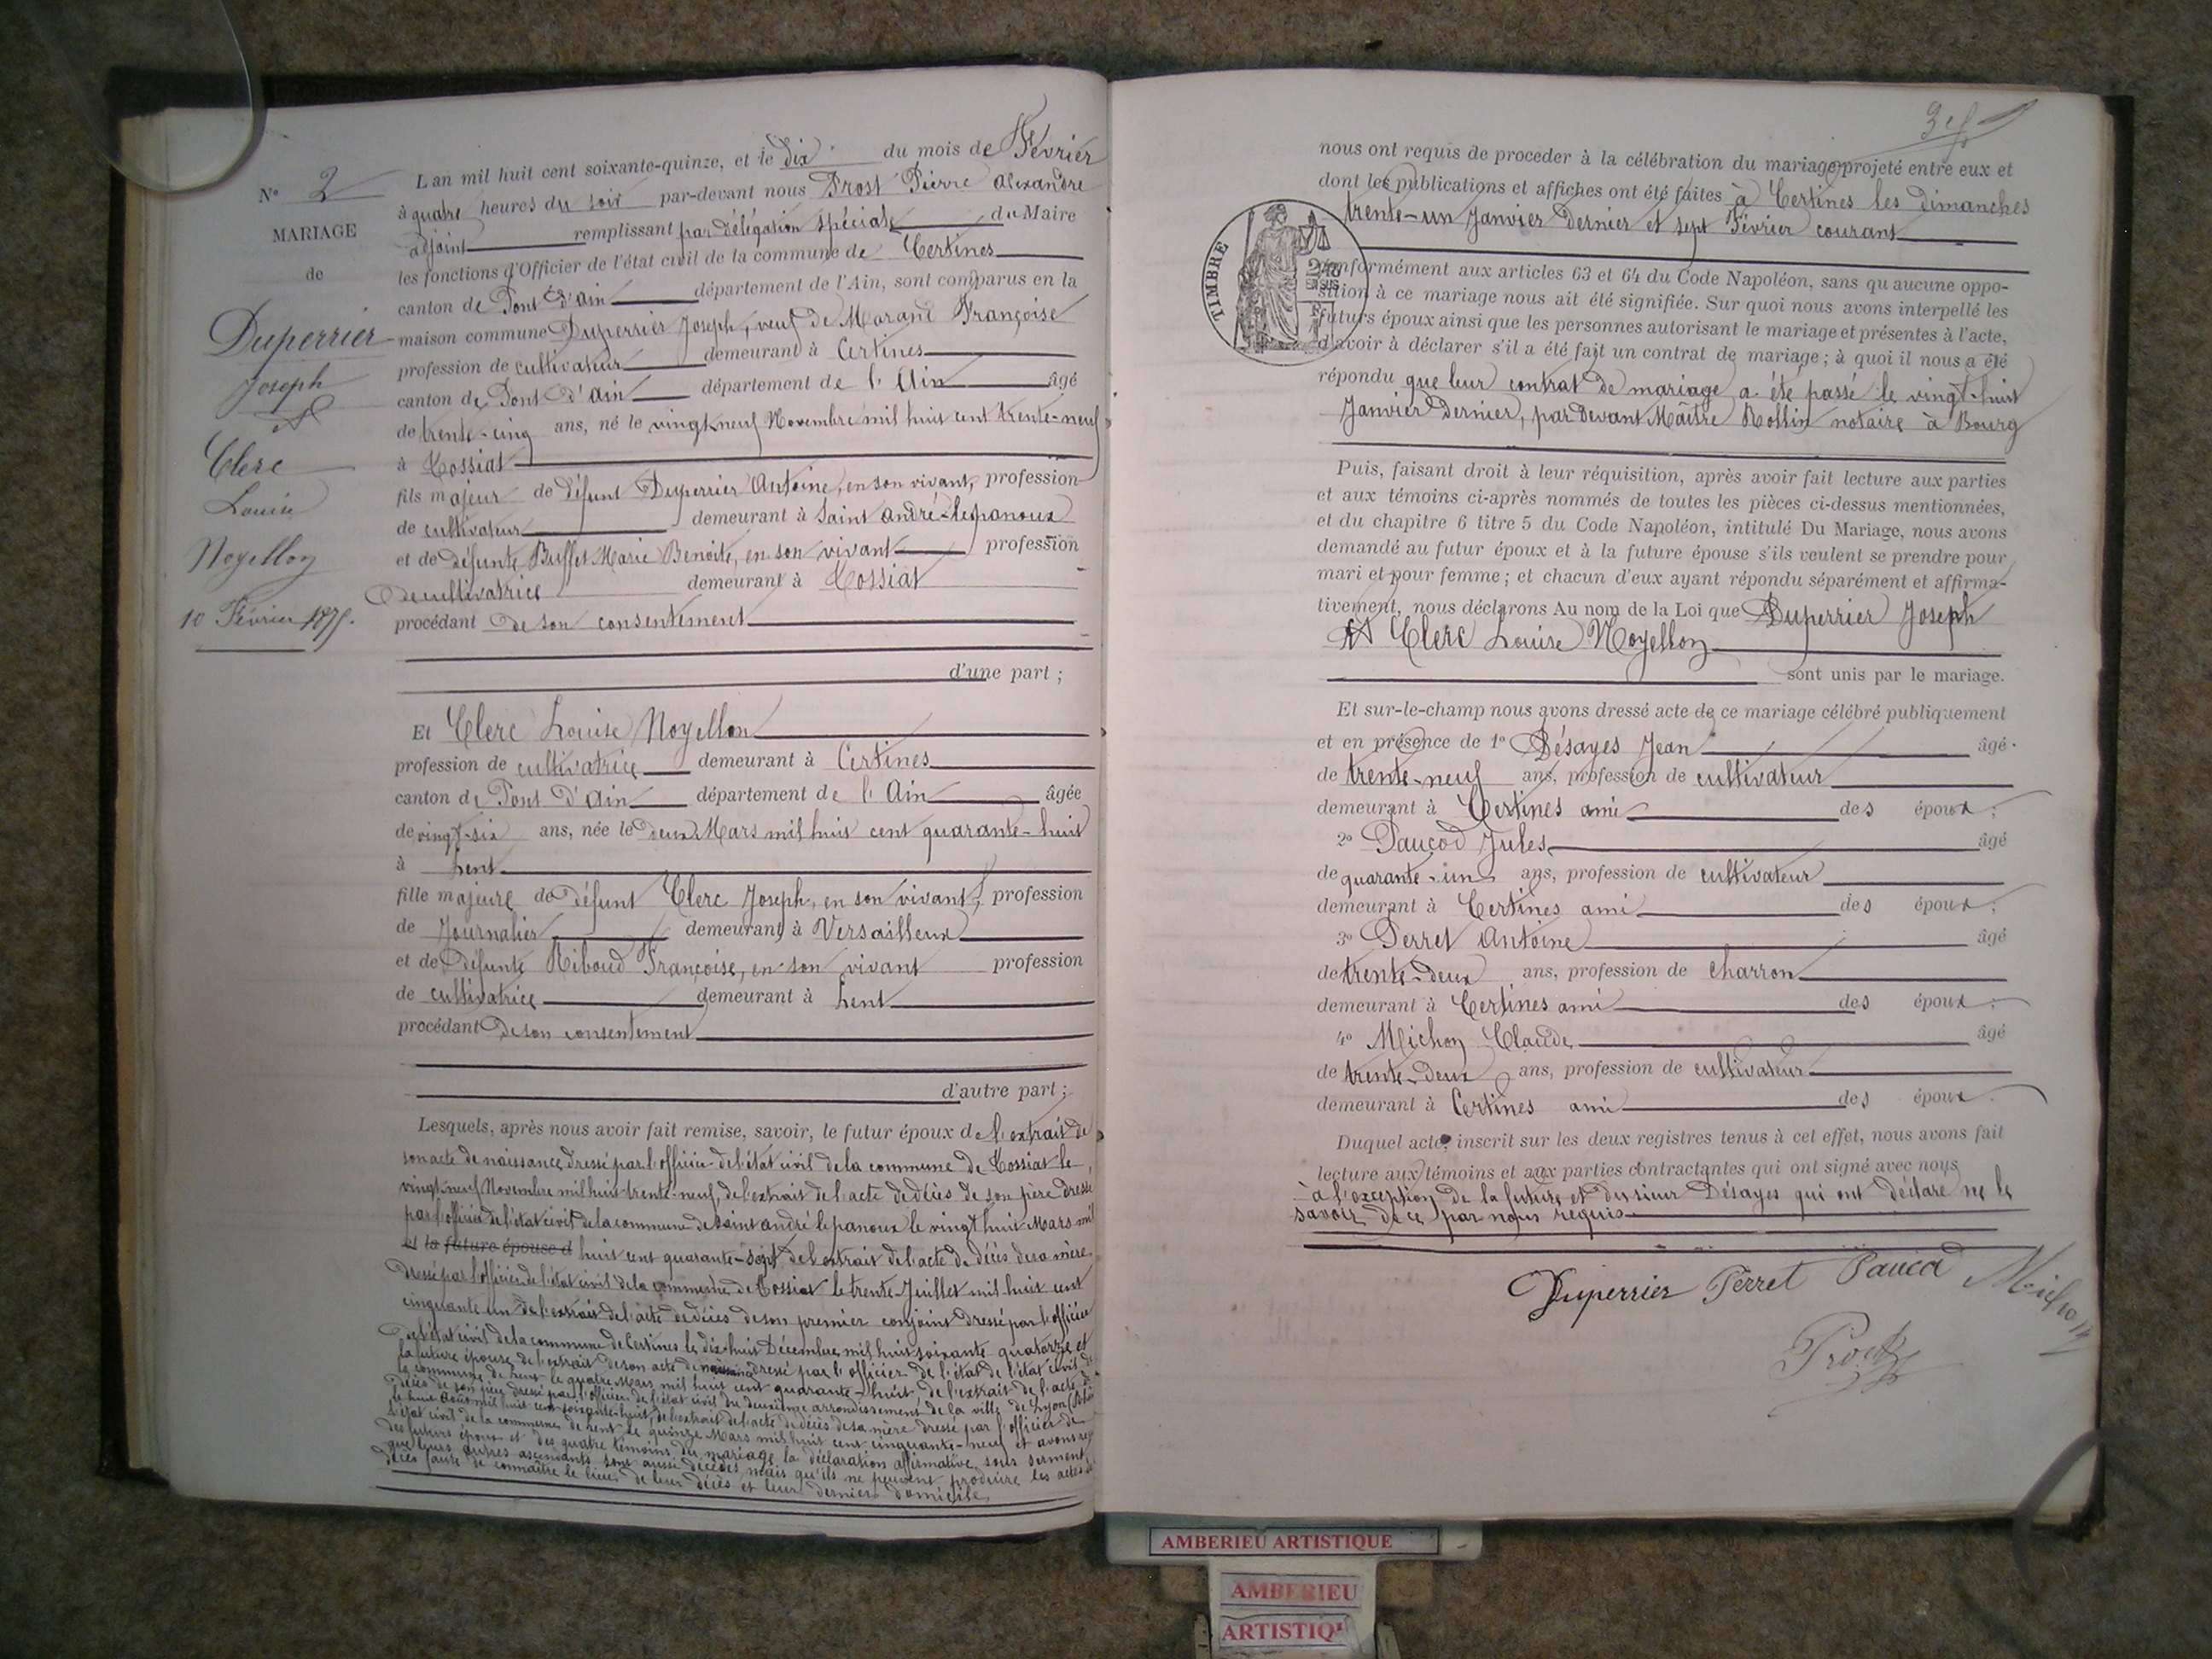 N° 2
MARIAGE
de
Duperrier
Joseph
et
Clerc
Louise
Noyellon
10 Février 1875.
L'an mil huit cent soixante-quinze, et le dix du mois de Février
à quatre heures du soir par-devant nous Prost Pierre Alexandre
adjoint remplissant par délégation spéciale du Maire
les fonctions d'Officier de l'état civil de la commune de Certines
canton de Pont d'Ain département de l'Ain, sont comparus en la
maison commune Duperrier Joseph, veuf de Morand Françoise
profession de cultivateur demeurant à Certines
canton de Pont d'Ain département de l'Ain âgé
de trente-cinq ans, né le vingt neuf Novembre mil huit cent trente-neuf
à Tossiat
fils majeur de défunt Duperrier Antoine, en son vivant, profession
de cultivateur demeurant à Saint André-lepanoux
et de défunte Buffet Marie Benoite, en son vivant profession
de cultivatrice demeurant à Tossiat
procédant de son consentement
d'une part ;
Et Clerc Louise Noyellon
profession de cultivatrice demeurant à Certines
canton de Pont d'Ain département de l'Ain âgée
de vingt-six ans, née le deux Mars mil huit cent quarante-huit
à Lent
fille majeure de défunt Clerc Joseph, en son vivant, profession
de Journalier demeurant à Versailleux
et de défunte Riboud Françoise, en son vivant profession
de cultivatrice demeurant à Lent
procédant de son consentement
d'autre part ;
Lesquels, après nous avoir fait remise, savoir, le futur époux de l'extrait de
son acte de naissance dressé par l'officier de l'état civil de la commune de Tossiat le
vingt neuf Novembre mil huit trente-neuf, de l'extrait de l'acte de décès de son père dressé
par l'officier de l'état civil de la commune de Saint André le panoux le vingt huit Mars mil
et la future épouse d huit cent quarante-sept de l'extrait de l'acte de décès de sa mère
dressé par l'officier de l'état civil de la commune de Tossiat le trente Juillet mil huit cent
cinquante un de l'extrait de l'acte de décès de son premier conjoint dressé par l'officier
de l'état civil de la commune de Certines le dix-huit Décembre mil huit soixante quatorze et
la future épouse de l'extrait de son acte de naissance dressé par l'officier de l'état de l'état civil de
la commune de Lent le quatre Mars mil huit cent quarante-huit de l'extrait de l'acte de
décès de son père dressé par l'officier de l'état civil du deuxième arrondissement de la ville de Lyon
le huit Août mil huit cent soixante-huit, de l'extrait de l'acte de décès de sa mère dressé par l'officier de
l'état civil de la commune de Lent le quinze Mars mil huit cent cinquante-neuf et avons reçu
des futurs époux et des quatre témoins du mariage la déclaration affirmative sous serment
que leurs autres ascendants sont aussi décédés mais qu'ils ne peuvent produire les actes de
décès faute de connaître le lieu de leur décès et leur dernier domicile
nous ont requis de procéder à la célébration du mariage projeté entre eux et
dont les publications et affiches ont été faites à Certines les dimanches
trente-un Janvier dernier et sept Février courant
TIMBRE
conformément aux articles 63 et 64 du Code Napoléon, sans qu'aucune oppo-
sition à ce mariage nous ait été signifiée. Sur quoi nous avons interpellé les
futurs époux ainsi que les personnes autorisant le mariage et présentes à l'acte,
d'avoir à déclarer s'il a été fait un contrat de mariage ; à quoi il nous a été
répondu que leur contrat de mariage a été passé le vingt-huit
Janvier dernier, par devant Maître Rollin notaire à Bourg
Puis, faisant droit à leur réquisition, après avoir fait lecture aux parties
et aux témoins ci-après nommés de toutes les pièces ci-dessus mentionnées,
et du chapitre 6 titre 5 du Code Napoléon, intitulé Du Mariage, nous avons
demandé au futur époux et à la future épouse s'ils veulent se prendre pour
mari et pour femme ; et chacun d'eux ayant répondu séparément et affirma-
tivement, nous déclarons Au nom de la Loi que Duperrier Joseph
et Clerc Louise Noyellon
sont unis par le mariage.
Et sur-le-champ nous avons dressé acte de ce mariage célébré publiquement
et en présence de 1° Désayes Jean âgé
de trente-neuf ans, profession de cultivateur
demeurant à Certines ami des époux ;
2° Paucod Jules âgé
de quarante-un ans, profession de cultivateur
demeurant à Certines ami des époux ;
3° Perret Antoine âgé
de trente-deux ans, profession de charron
demeurant à Certines ami des époux ;
4° Michon Claude âgé
de trente-deux ans, profession de cultivateur
demeurant à Certines ami des époux.
Duquel acte, inscrit sur les deux registres tenus à cet effet, nous avons fait
lecture aux témoins et aux parties contractantes qui ont signé avec nous
à l'exception de la future et du sieur Désayes qui ont déclaré ne le
savoir de ce par nous requis
Duperrier Perret Paucod Michon
Prost
AMBERIEU ARTISTIQUE
AMBERIEU
ARTISTIQ